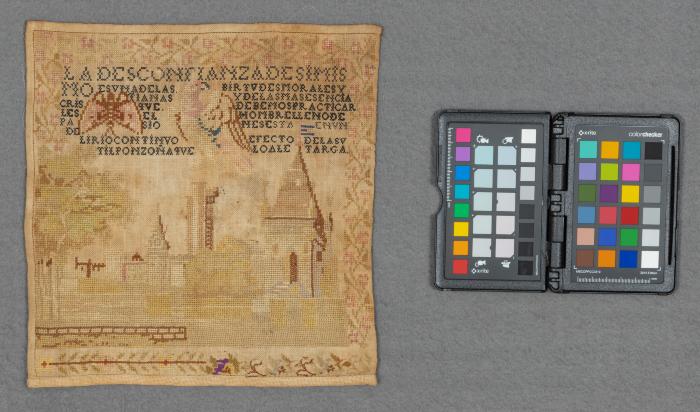 LA DESCONFIANZA DE SI MIS
MO ES UNA DE LAS BIRTUDES MORALES Y
CRIS TIANAS Y DE LAS MAS ESENCIA
LES QUE DEBEMOS PRACTICAR
PA EL HOMBRE LLENO DE
DE SIO NES ESTA EN UN
LIRIO CONTINUO EFECTO DE LA SU
TIL PONZOÑA QUE LO ALE TARGA
x·rite
x·rite colorchecker